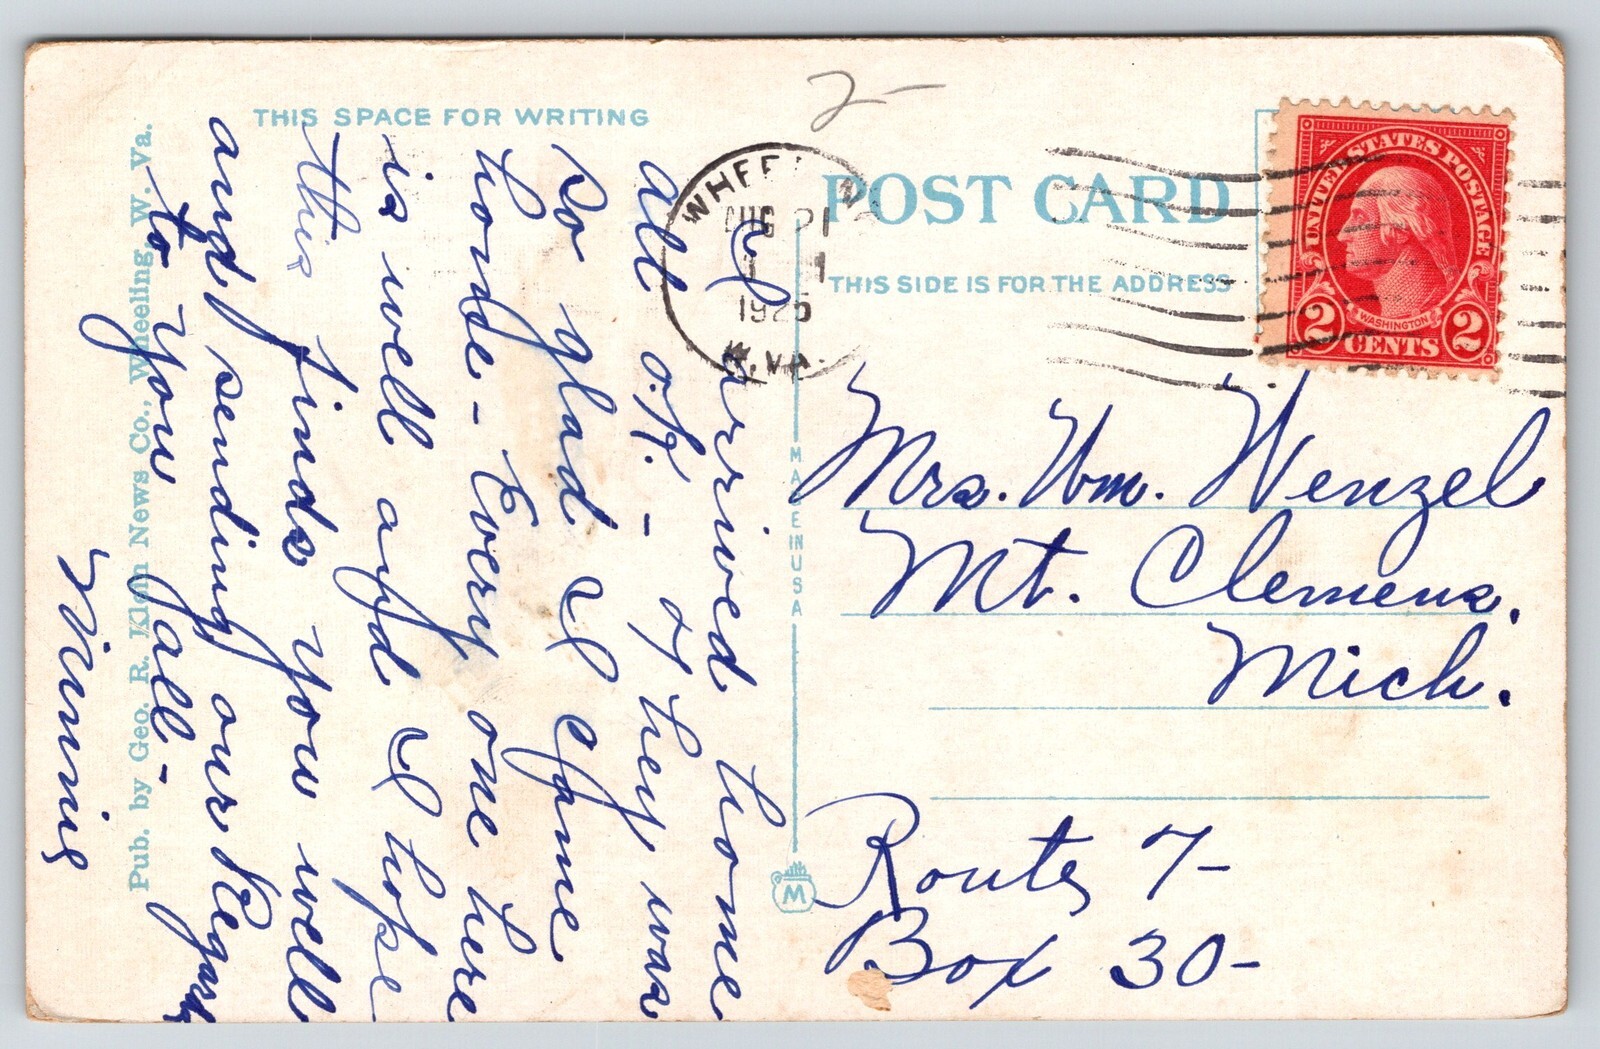 2-
THIS SPACE FOR WRITING
POST CARD
THIS SIDE IS FOR THE ADDRESS
WHEELING
AUG 21
1925
W. VA.
UNITED STATES POSTAGE
WASHINGTON
2 CENTS 2
I arrived home
all o.k. - They was
so glad I came
home - Every one here
is well and I hope
this finds you well
and sending our Regards
to you all -
Minnie
Mrs. Wm. Wenzel
Mt. Clemens,
Mich.
Route 7-
Box 30-
MADE IN USA
M
Pub. by Geo. R. Klein News Co., Wheeling, W. Va.